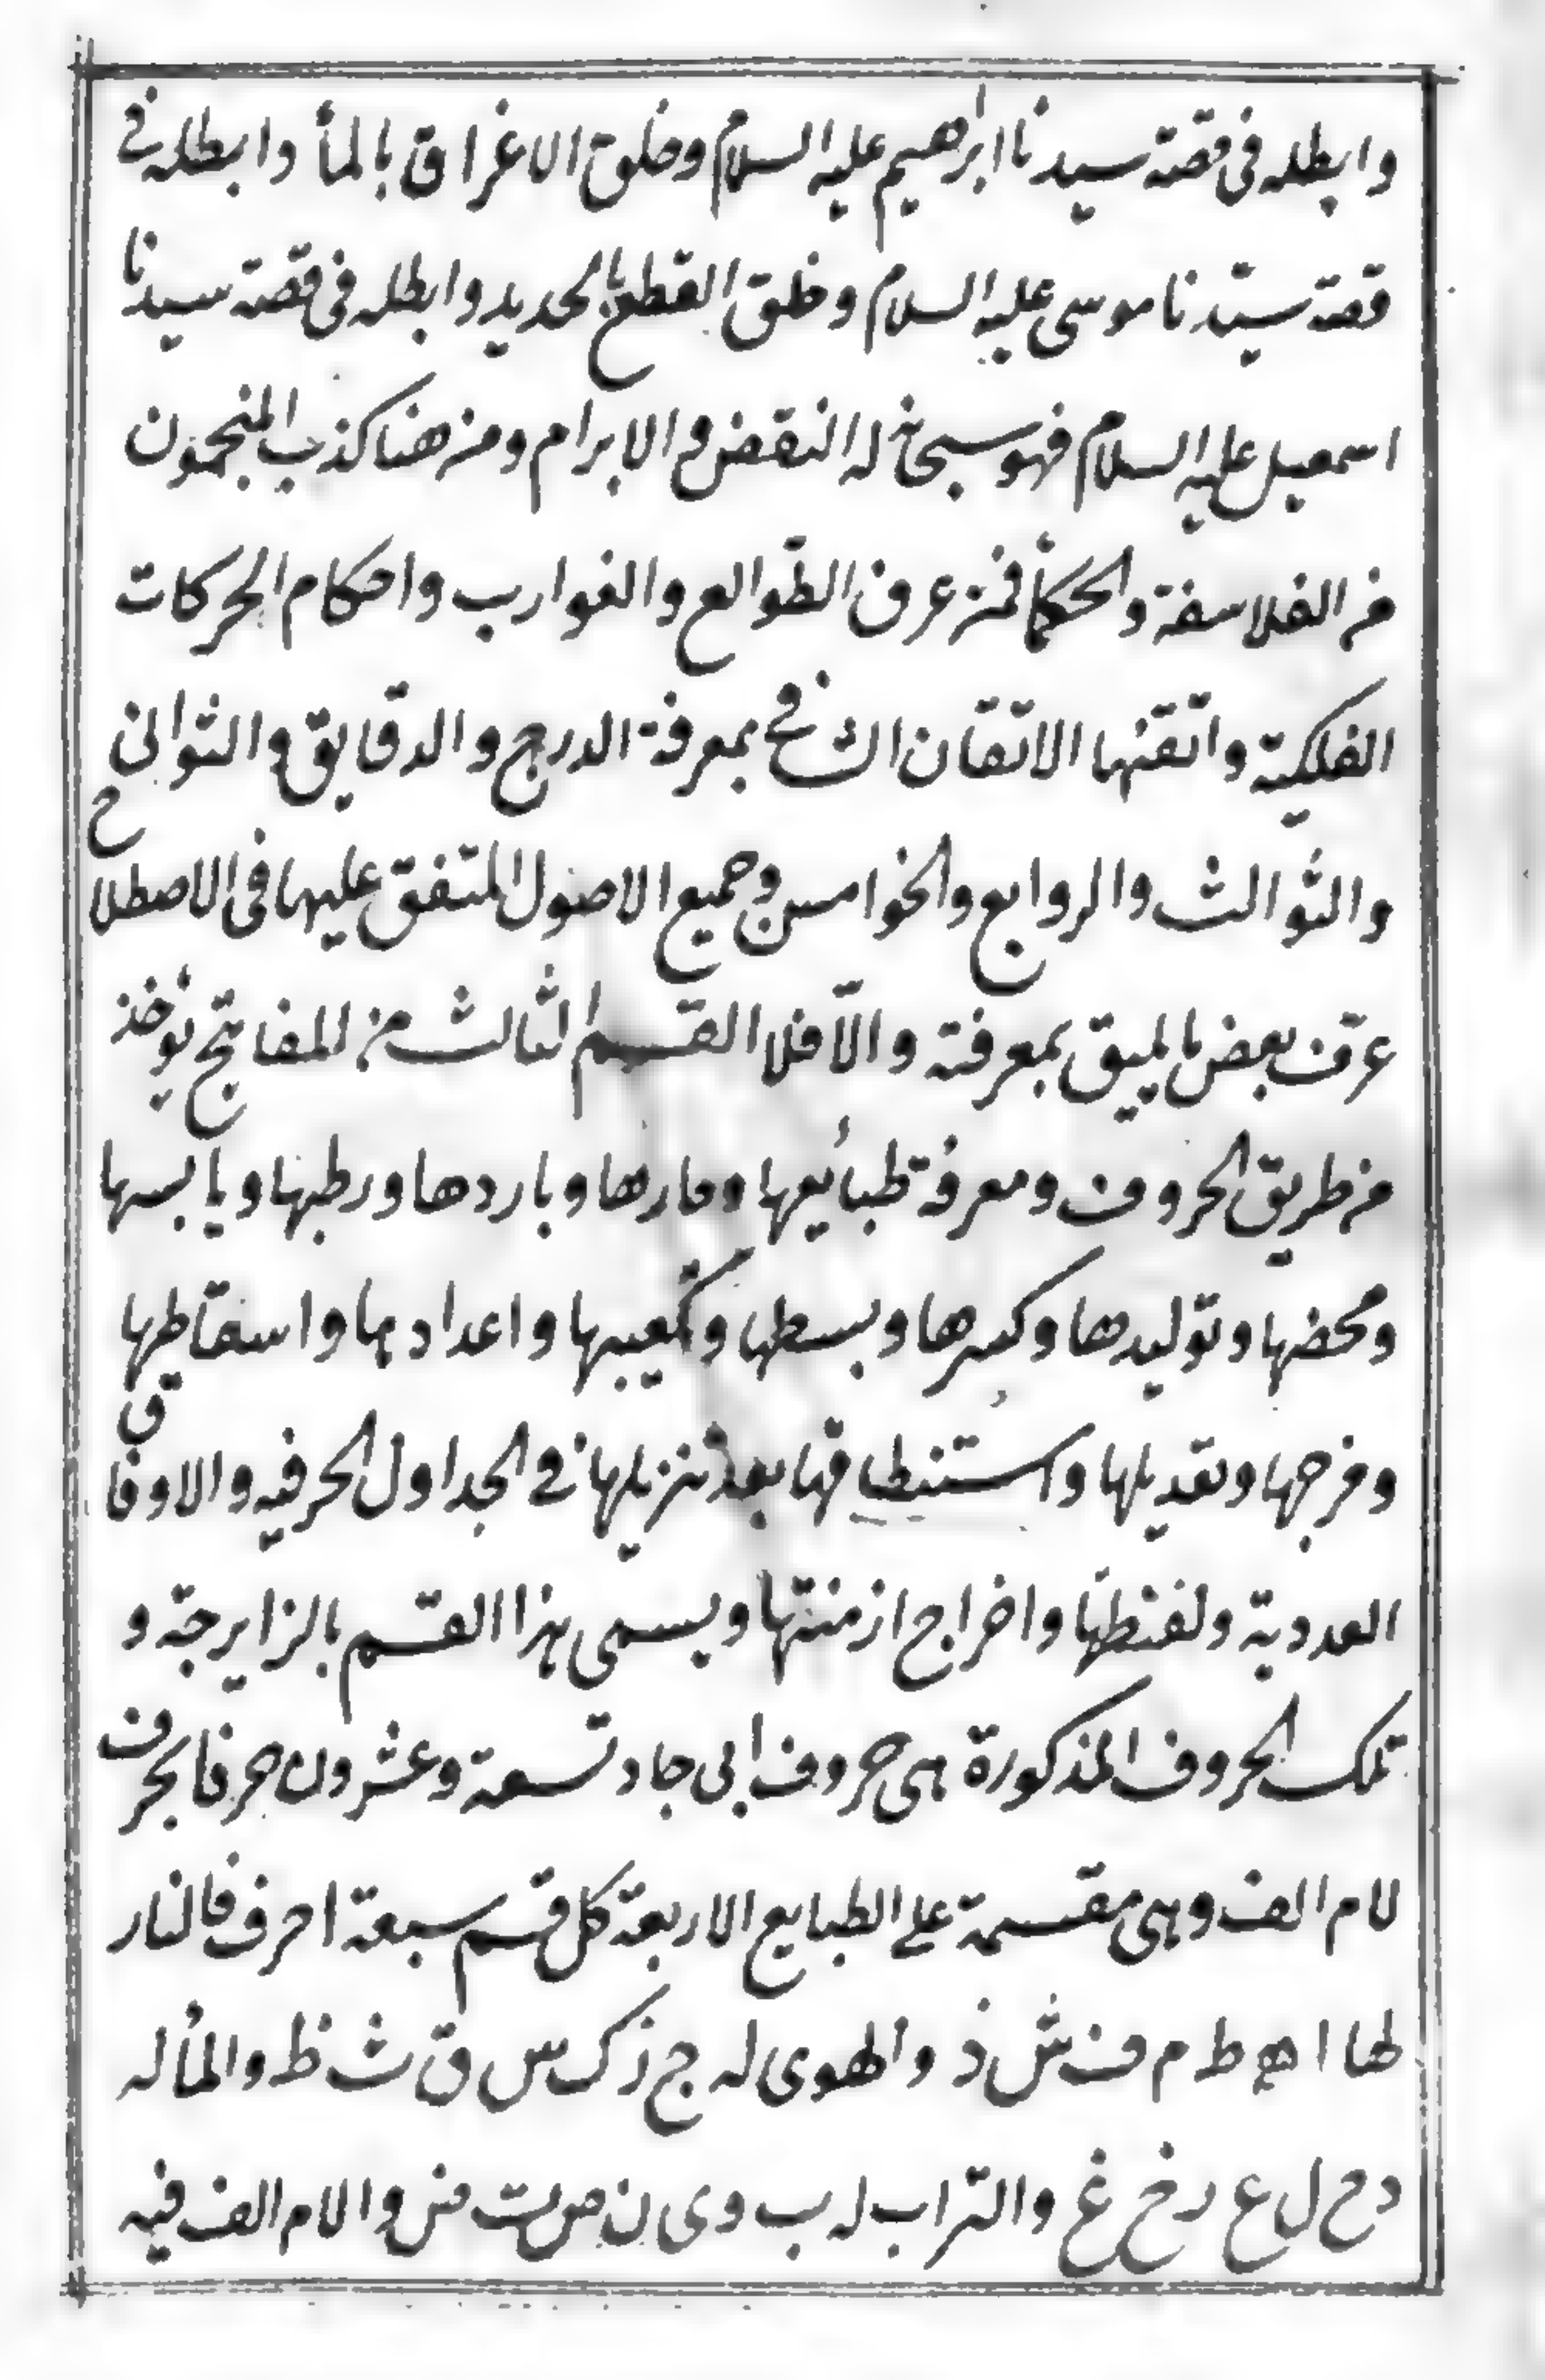 وابطله في قصة سيدنا ابرهيم عليه السلام وخلق الاغراق بالمأ وابطله في
قصة سيّدنا موسى عليه السلام وخلق القطع بالحديد وابطله في قصة سيدنا
اسمعيل عليه السلام فهو سبحانه له النقض والابرام ومن هنا كذب المنجمون
من الفلاسفة والحكمأ فمن عرف الطّوالع والغوارب واحكام الحركات
الفلكيّة واتقنها الاتقان الشافي بمعرفة الدرج والدقايق والثواني
والثوالث والروابع والخوامس وجميع الاصول المتفق عليها في الاصطلاح
عرف بعض ما يليق بمعرفته والّا فلا القسم الثالث من المفاتيح يؤخذ
من طريق الحروف ومعرفة طبائعها وحارها وباردها ورطبها ويابسها
ومحضها وتوليدها وكسرها وبسطها وتكعيبها واعدادها واسقاطها
ومزجها وتعديلها واستنطاقها بعد تنزيلها في الجداول الحرفيه والاوفاق
العددية ولفظها واخراج ازمنتها ويسمى هذا القسم بالزايرجة و
تلك الحروف المذكورة هى حروف ابى جاد تسعة وعشرون حرفا بحرف
لام الف وهى مقسمة على الطبايع الاربعة كل قسم سبعة احرف فالنار
لها ا ه ط م ف ش ذ والهوى له ج ز ك س ق ث ظ والمأ له
د ح ل ع ر خ غ والتراب له ب و ى ن ص ت ض والام الف فيه